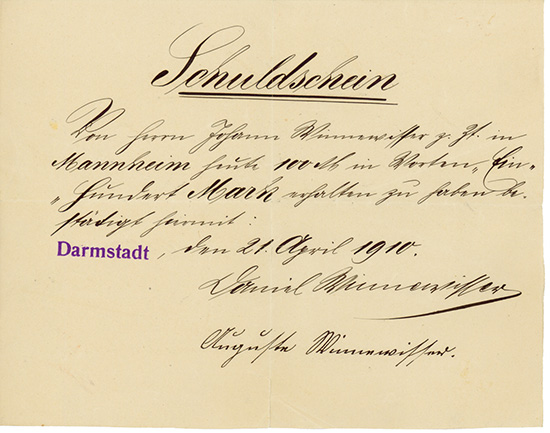 Schuldschein
Von Herrn Johann Winnewisser z. Zt. in
Mannheim heute 100 M in Worten „Ein-
„Hundert Mark erhalten zu haben be-
stätigt hiermit:
Darmstadt, den 21. April 1910.
Daniel Winnewisser
Auguste Winnewisser.